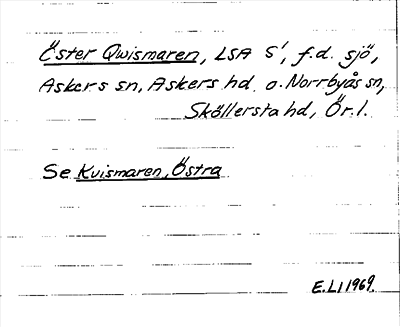 Öster Qwismaren, LSA S', f.d. sjö,
Askers sn, Askers hd o. Norrbyås sn,
Sköllersta hd, Ör.l.
Se Kvismaren, Östra
E.Li 1969.